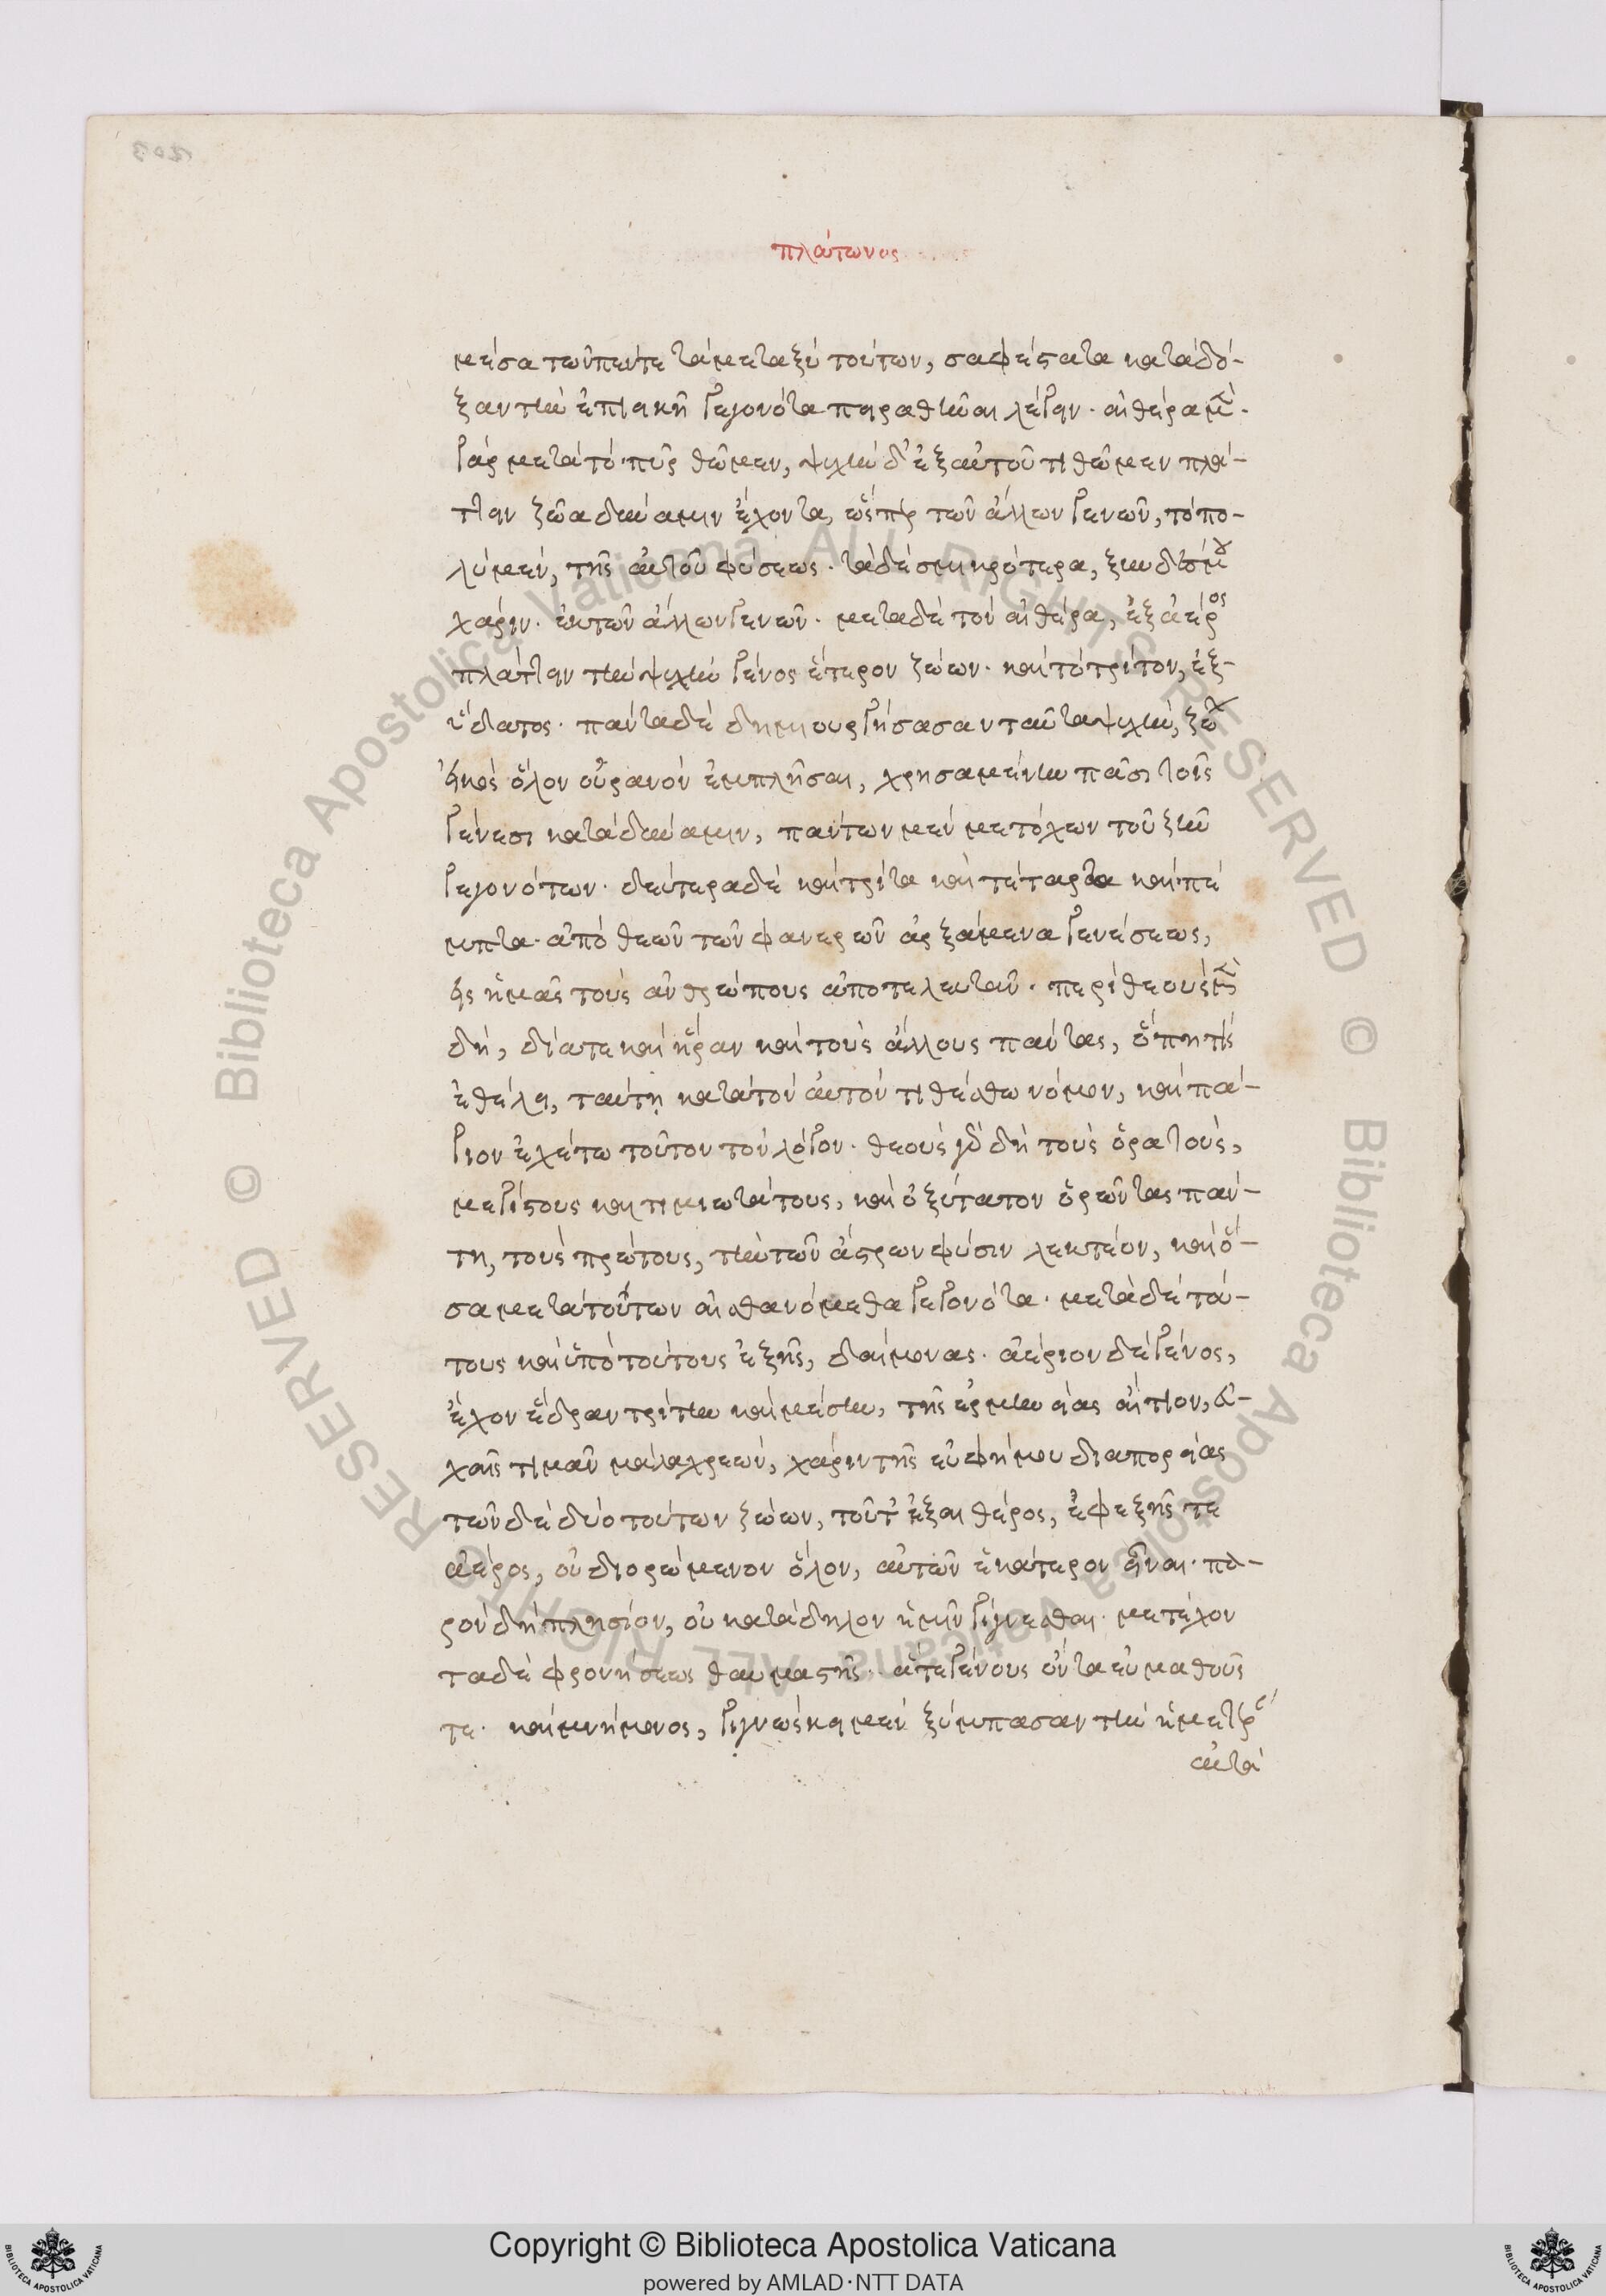 πλάτωνος
μέσα τῶν πέντε τὰ μεταξὺ τούτων, σαφέστατα κατὰ δό-
ξαν τὴν ἐπιεικῆ γεγονότα πειραθῶμεν λέγειν· αἰθέρα μὲν
γὰρ μετὰ τὸ πῦρ θῶμεν, ψυχὴν δ' ἐξ αὐτοῦ τιθῶμεν πλά-
ττειν ζῶα δύναμιν ἔχοντα, ὥσπερ τῶν ἄλλων γενῶν, τὸ πο-
λὺ μὲν, τῆς αὐτοῦ φύσεως· τὰ δὲ σμικρότερα, ξυνδέσμου
χάριν· ἐκ τῶν ἄλλων γενῶν· μετὰ δὲ τὸν αἰθέρα, ἐξ ἀέρος
πλάττειν τὴν ψυχὴν γένος ἕτερον ζώων· καὶ τὸ τρίτον, ἐξ-
ὕδατος· πάντα δὲ δημιουργήσασαν ταῦτα ψυχὴν, ζώων
εἰκὸς ὅλον οὐρανὸν ἐμπλῆσαι, χρησαμένην πᾶσι τοῖς
γένεσι κατὰ δύναμιν, πάντων μὲν μετόχων τοῦ ζῆν
γεγονότων· δεύτερα δὲ καὶ τρίτα καὶ τέταρτα καὶ πέ
μπτα· ἀπὸ θεῶν τῶν φανερῶν ἀρξάμενα γενέσεως,
εἰς ἡμᾶς τοὺς ἀνθρώπους ἀποτελευτᾶν· περὶ θεοὺς μὲν
δὴ, δία τε καὶ ἥραν καὶ τοὺς ἄλλους πάντας, ὅπη τίς
ἐθέλει, ταύτῃ κατὰ τὸν αὐτὸν τιθέσθω νόμον, καὶ πά-
γιον ἐχέτω τοῦτον τὸν λόγον· θεοὺς δὲ δὴ τοὺς ὁρατοὺς,
μεγίστους καὶ τιμιωτάτους, καὶ ὀξύτατον ὁρῶντας πάν-
τη, τοὺς πρώτους, τὴν τῶν ἄστρων φύσιν λεκτέον, καὶ ὅ-
σα μετὰ τούτων αἰσθανόμεθα γεγονότα· μετὰ δὲ τού-
τους καὶ ὑπὸ τούτους ἑξῆς, δαίμονας· ἀέριον δὲ γένος,
ἔχον ἕδραν τρίτην καὶ μέσην, τῆς ἑρμηνείας αἴτιον, εὐ-
χαῖς τιμᾶν μάλα χρεὼν, χάριν τῆς εὐφήμου διαπορείας
τῶν δὲ δύο τούτων ζώων, τοῦτ' ἐξ αἰθέρος, ἐφεξῆς τε
ἀέρος, οὐ διορώμενον ὅλον, αὐτῶν ἑκάτερον εἶναι· πα-
ρὸν δὴ πλησίον, οὐ κατάδηλον ἡμῖν γίγνεσθαι· μετέχον
τα δὲ φρονήσεως θαυμαστῆς· ἅτε γένους ὄντα εὐμαθοῦς
τε· καὶ μνήμονος, γιγνώσκει μὲν ξύμπασαν τὴν ἡμετέρ
αὐτὰ